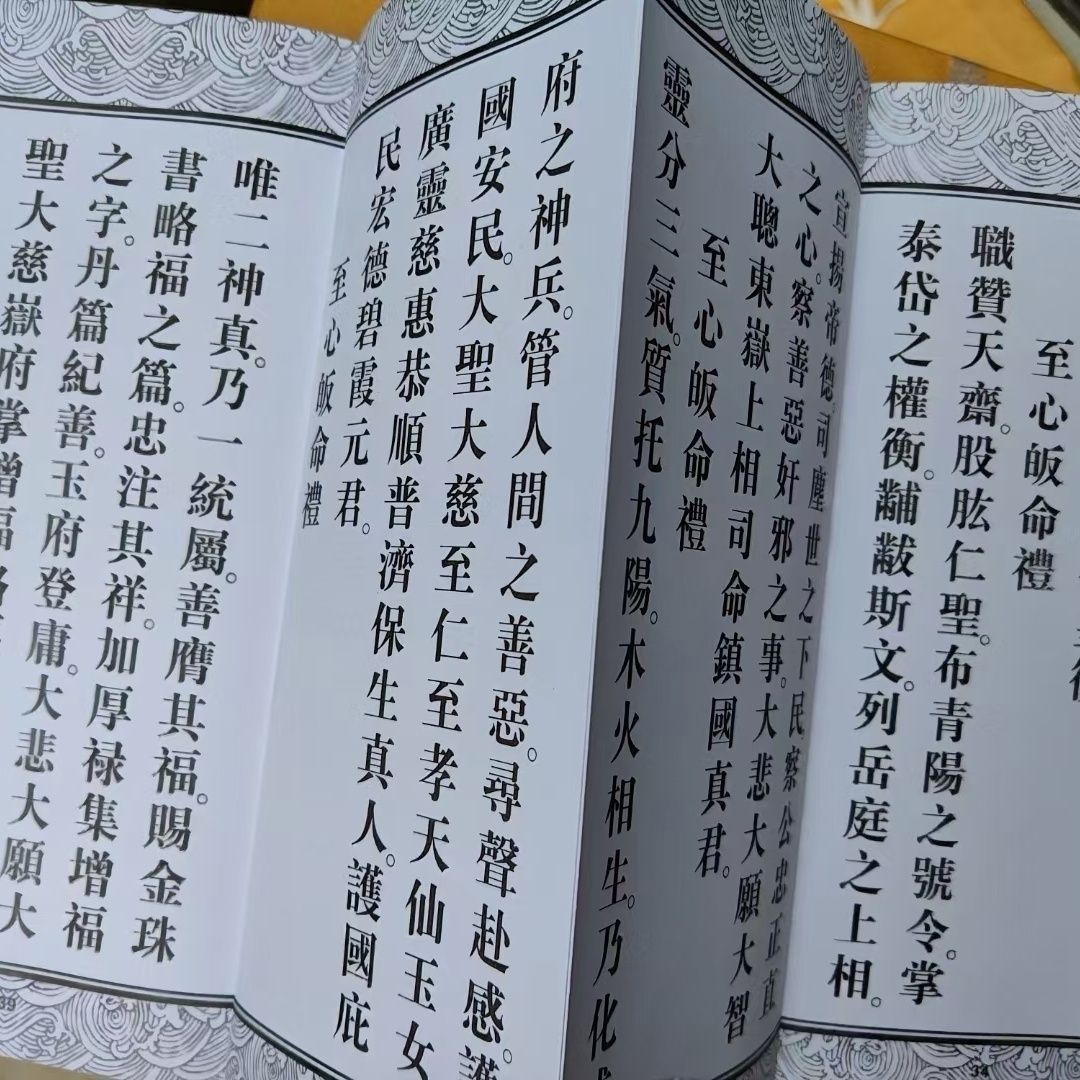 至心皈命禮
職贊天齋。股肱仁聖。布青陽之號令。掌
泰岱之權衡。黼黻斯文。列岳庭之上相。
宣揚帝德。司塵世之下民。察公忠正直
之心。察善惡奸邪之事。大悲大願大智
大聰東嶽上相司命鎮國真君。
至心皈命禮
靈分三氣。質托九陽。木火相生。乃化
府之神兵。管人間之善惡。尋聲赴感。護
國安民。大聖大慈至仁至孝天仙玉女
廣靈慈惠恭順普濟保生真人。護國庇
民宏德碧霞元君。
至心皈命禮
唯二神真。乃一統屬。善膺其福。賜金珠
書略福之篇。忠注其祥。加厚禄集增福
之字。丹篇紀善。玉府登庸。大悲大願大
聖大慈嶽府掌增福
34
39